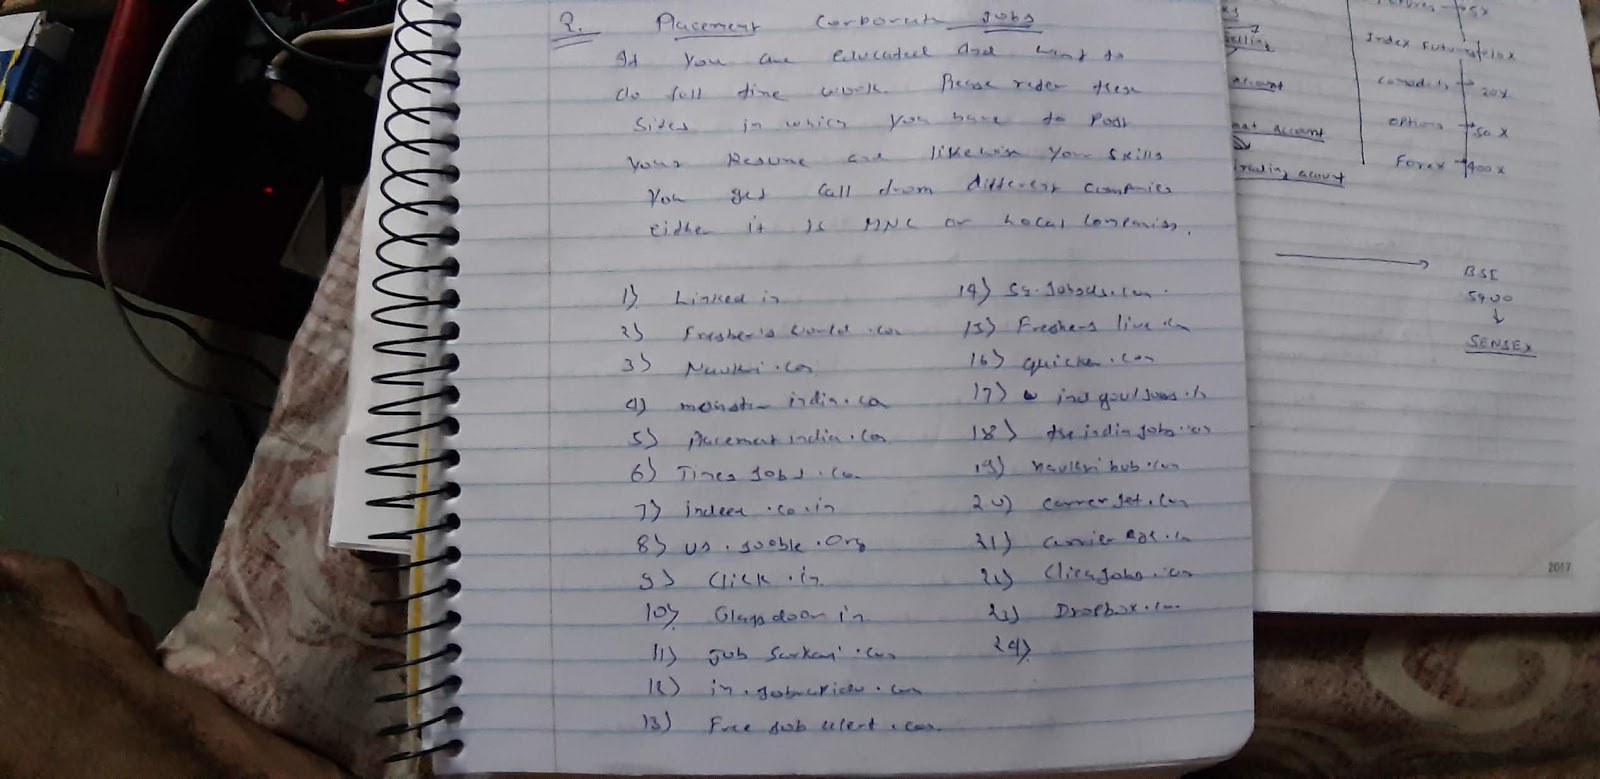 2. Placement Corporate Jobs
If you are educated and want to
do full time work. Please refer these
sites in which you have to Post
your Resume and likewise your skills
you get call from different companies
either it is MNC or Local Companies.
1) Linked in
2) Fresher's world.com
3) Naukri.com
4) monster india.co
5) Placement india.com
6) Times Jobs.com
7) indeed.co.in
8) us.jooble.Org
9) Click.in
10) Glassdoor in
11) Job Sarkari.com
12)
13) Free Job alert.com.
14)
15) Freshers live.com
16)
17) ind govt jobs.in
18) the india jobs.com
19) naukri hub.com
20) career jet.com
21)
22) Click Jobs.com
23) Dropbox.com
24)
Index Futures 10x
20x
Options 50x
Forex 400x
Account
Trading account
BSE
SENSEX
2017